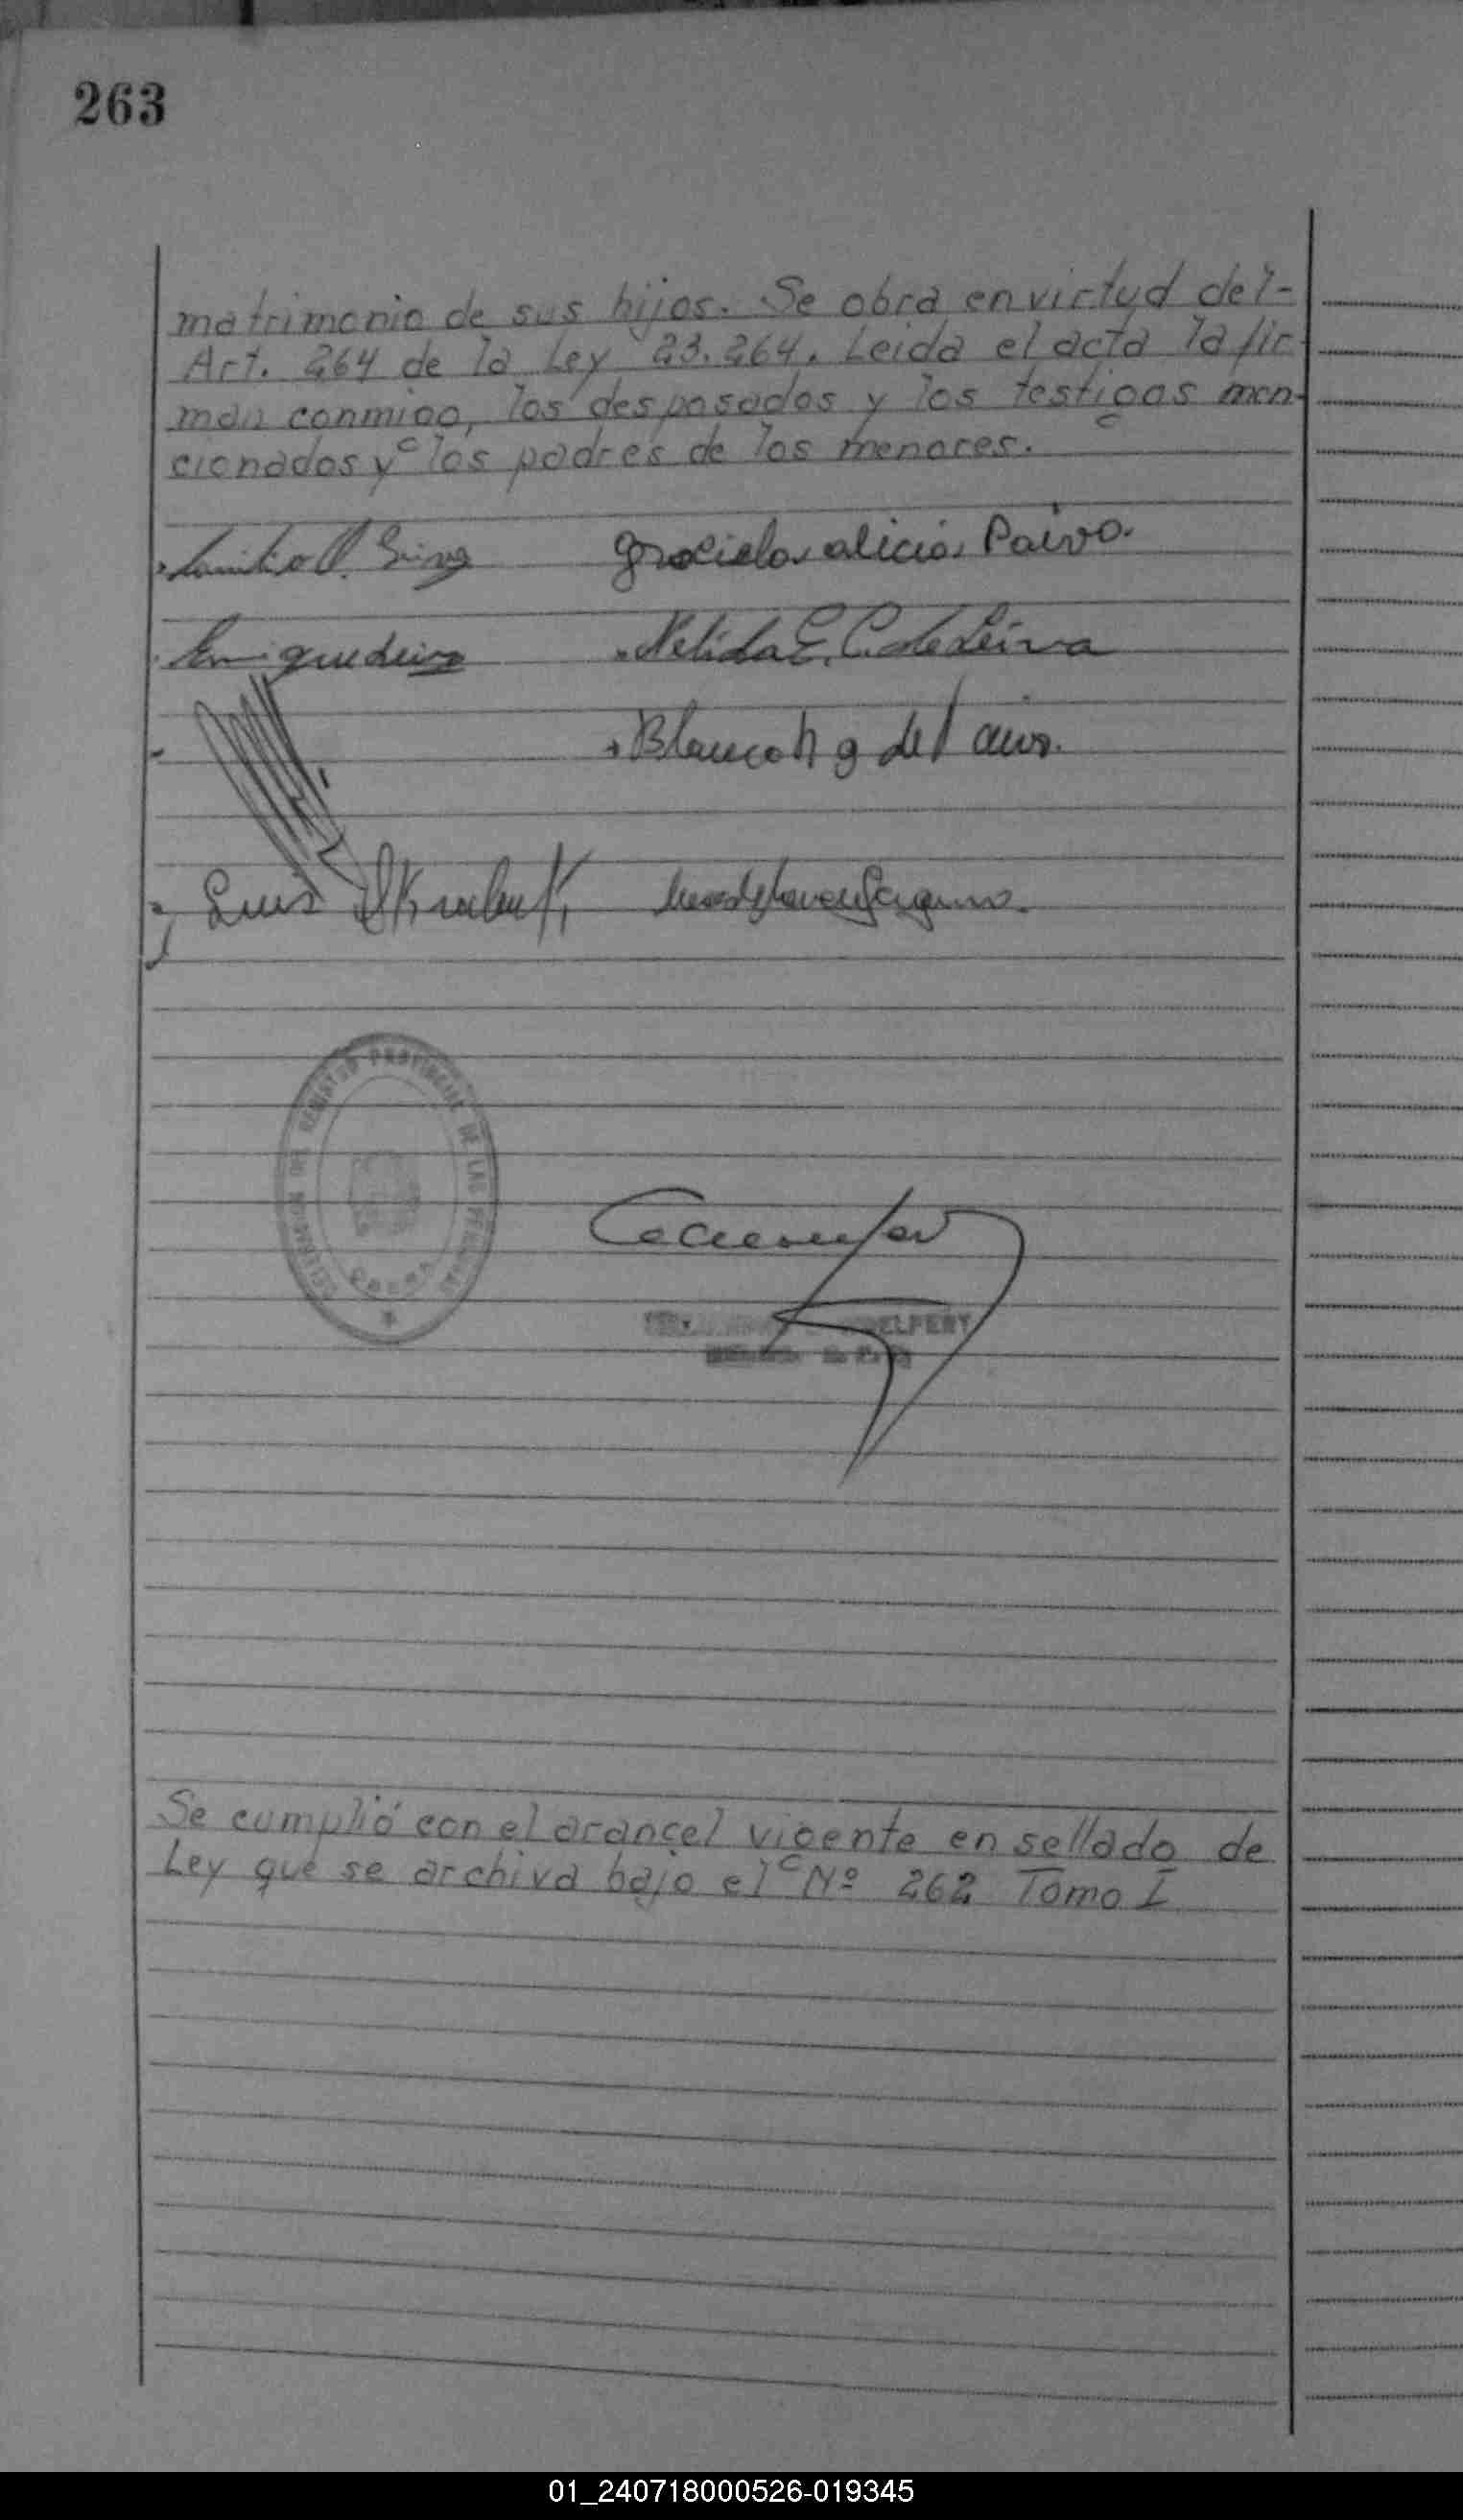 263
matrimonio de sus hijos. Se obra en virtud del-
Art. 264 de la Ley 23.264. Leida el acta la fir-
man conmigo, los desposados y los testigos men-
cionados y los padres de los menores.
Graciela alicia Paiva.
Enrique Leiva Nelida E. C. de Leiva
Blanca
Luis
REGISTRO PROVINCIAL DE LAS PERSONAS
Se cumplió con el arancel vigente en sellado de
Ley que se archiva bajo el Nº 262 Tomo I
01_240718000526-019345